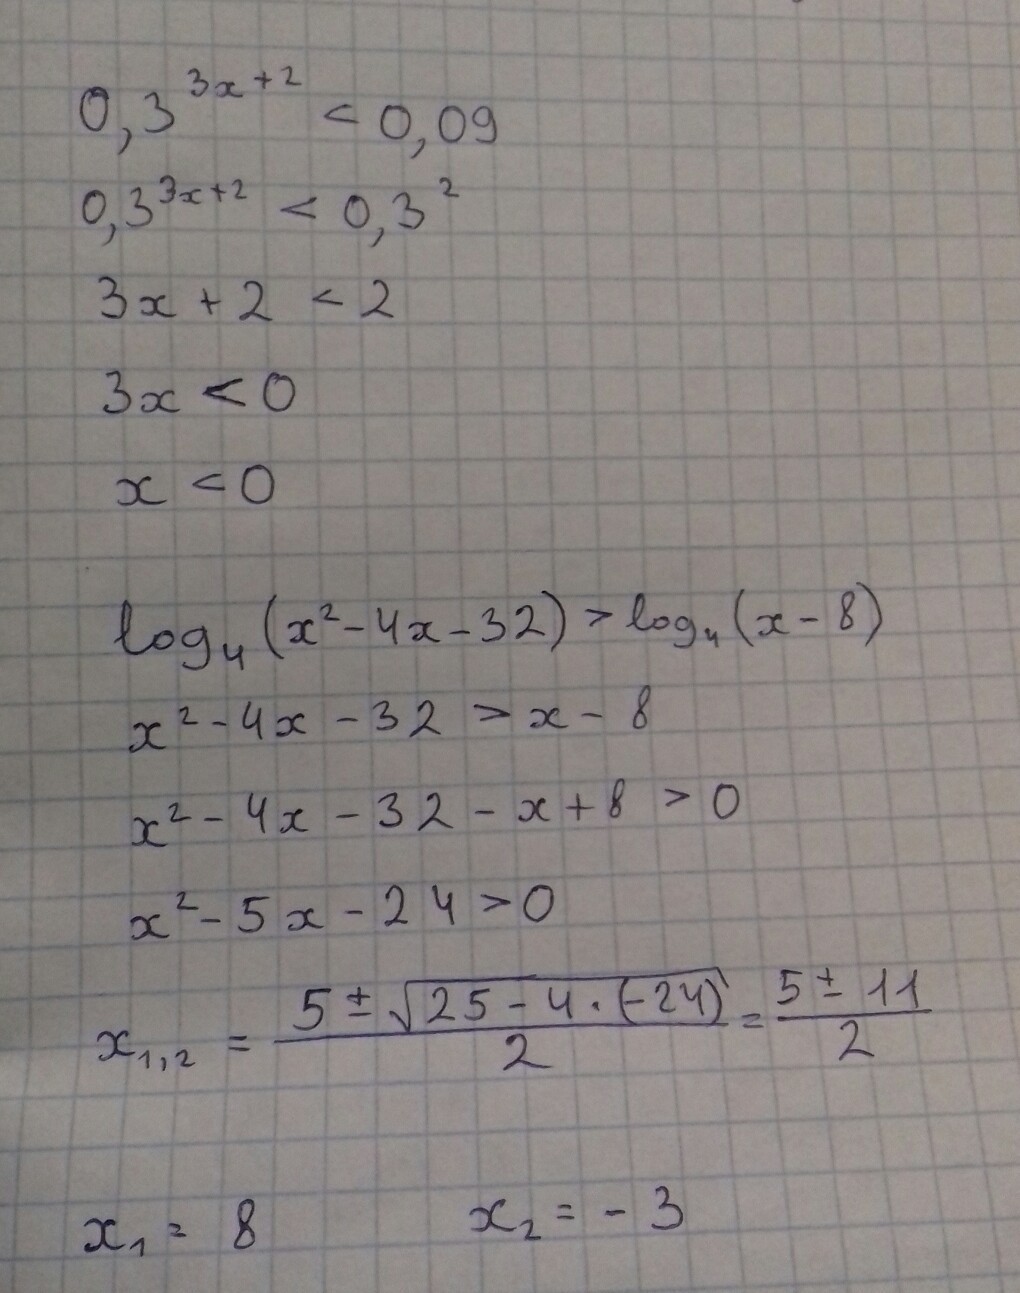 0,3^{3x+2} < 0,09
0,3^{3x+2} < 0,3^2
3x + 2 < 2
3x < 0
x < 0
log_4 (x^2 - 4x - 32) > log_4 (x - 8)
x^2 - 4x - 32 > x - 8
x^2 - 4x - 32 - x + 8 > 0
x^2 - 5x - 24 > 0
x_{1,2} = \frac{5 ± \sqrt{25 - 4 · (-24)}}{2} = \frac{5 ± 11}{2}
x_1 = 8 x_2 = - 3